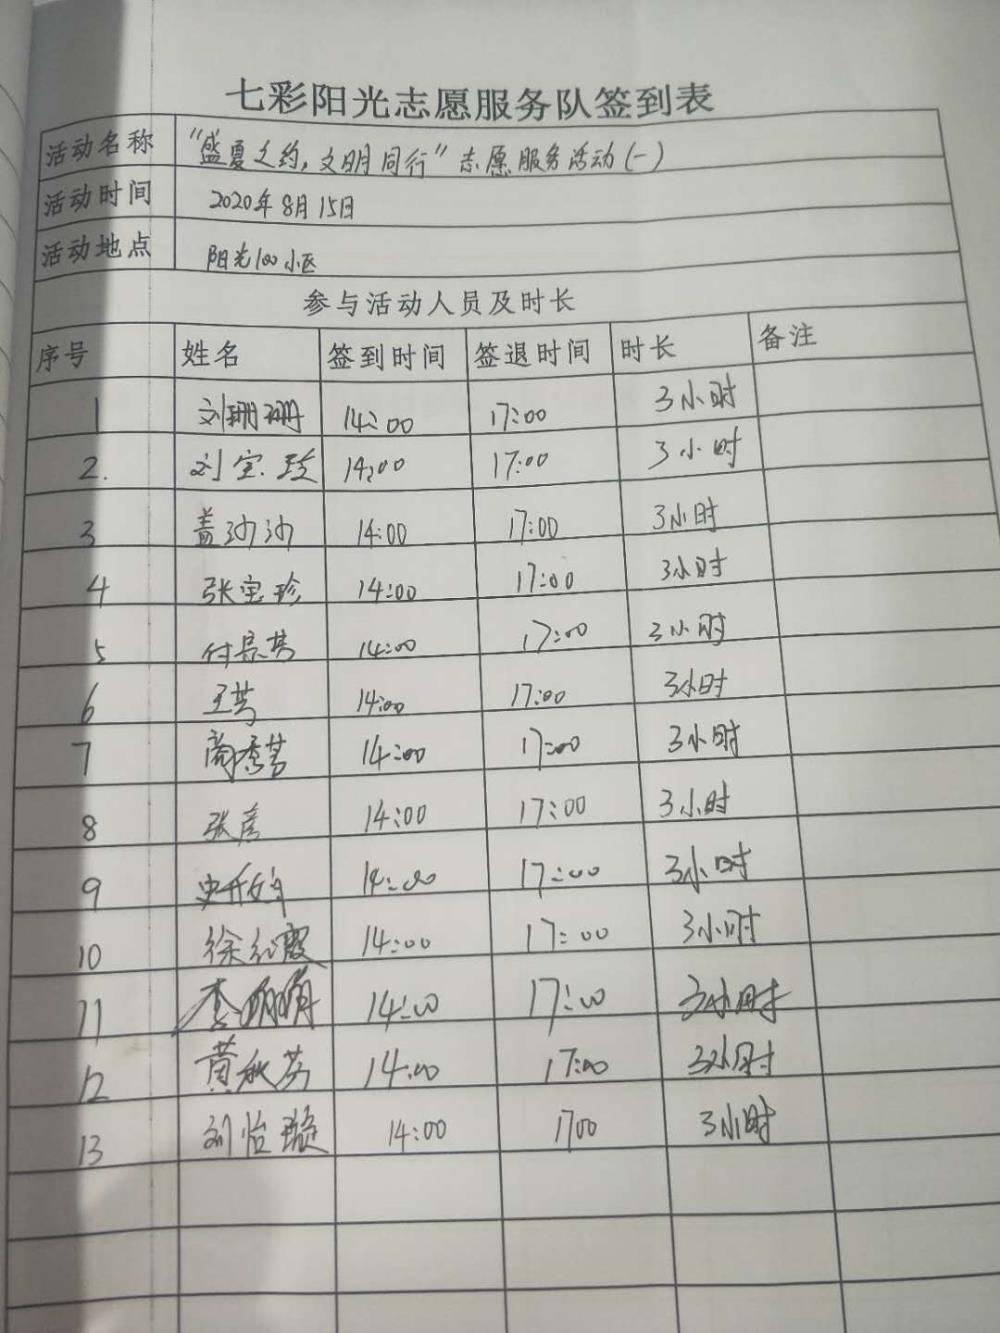 七彩阳光志愿服务队签到表
活动名称 “盛夏之约，文明同行”志愿服务活动(一)
活动时间 2020年8月15日
活动地点 阳光100小区
参与活动人员及时长
序号 姓名 签到时间 签退时间 时长 备注
1 刘珊珊 14:00 17:00 3小时
2. 刘宝珍 14:00 17:00 3小时
3 盖沙沙 14:00 17:00 3小时
4 张宝珍 14:00 17:00 3小时
5 付景芳 14:00 17:00 3小时
6 王芳 14:00 17:00 3小时
7 14:00 17:00 3小时
8 张彦 14:00 17:00 3小时
9 14:00 17:00 3小时
10 徐红霞 14:00 17:00 3小时
11 李明明 14:00 17:00 3小时
12 黄秋芬 14:00 17:00 3小时
13 刘怡璇 14:00 1700 3小时